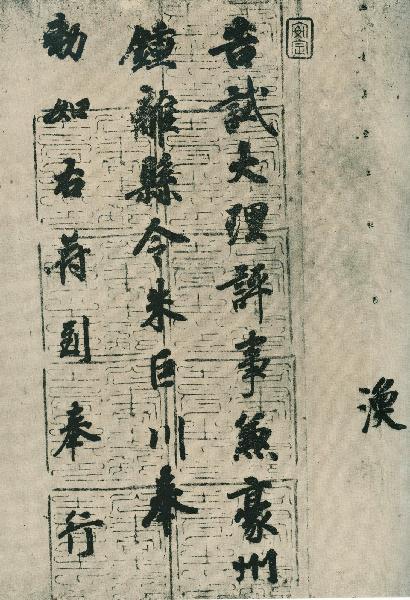 渙
告試大理評事兼豪州
鍾離縣令朱巨川奉
勅如右符到奉行